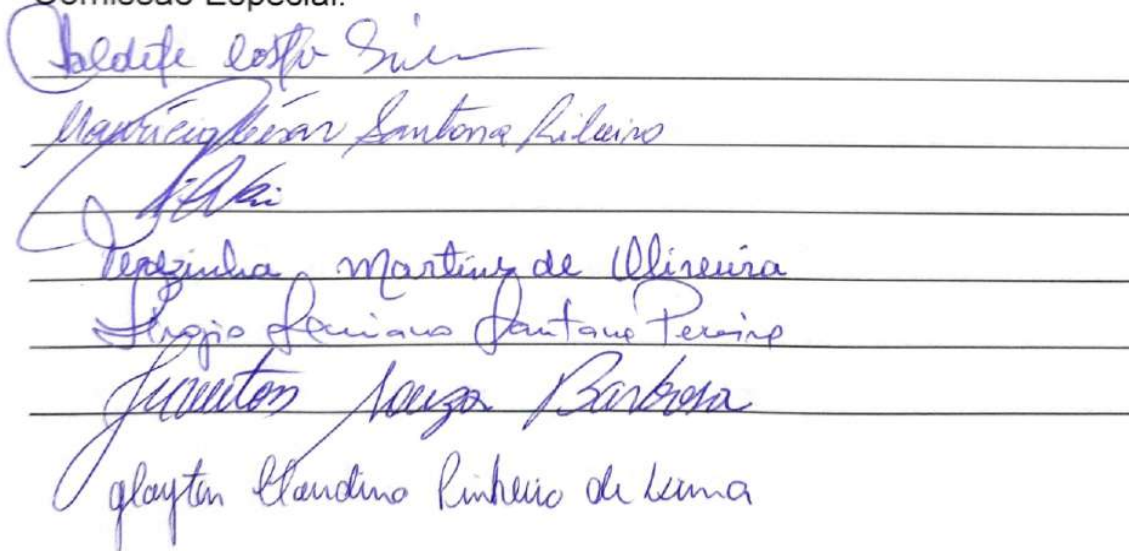 Comissão Especial.
Costa
Maurício César Santana Ribeiro
Terezinha Martins de Oliveira
Sérgio Santana Pereira
Souza Barbosa
glayton Claudino Pinheiro de Lima